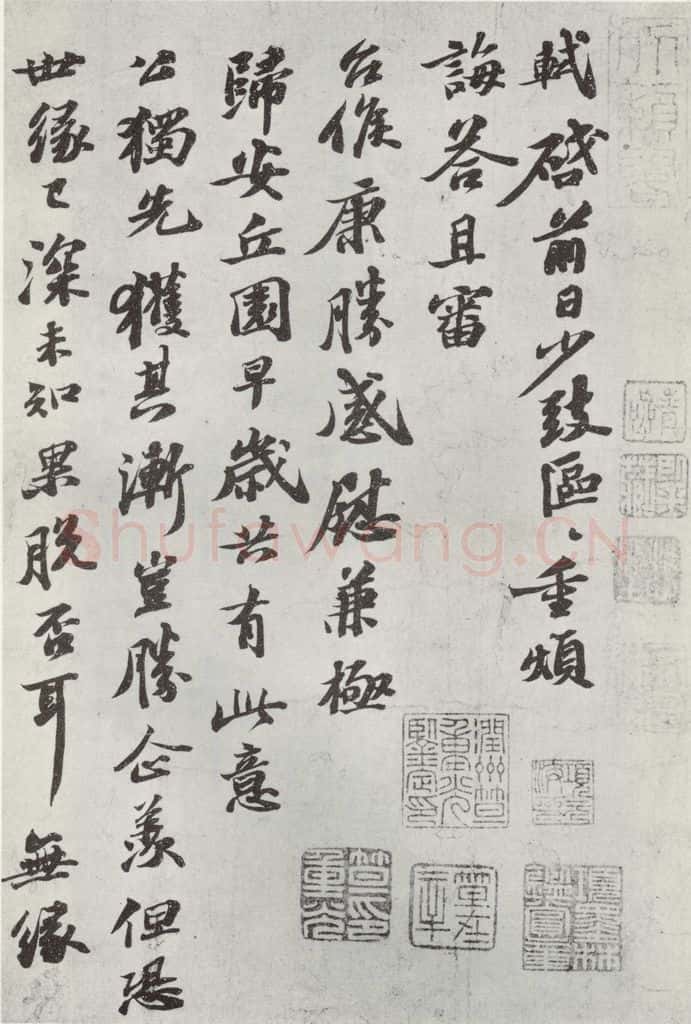 軾啓前日少致區〻重煩
誨答且審
台候康勝感慰兼極
歸安丘園早歲共有此意
公獨先獲其漸豈勝企羨但恐
世緣已深未知果脫否耳無緣
Shufawang.CN